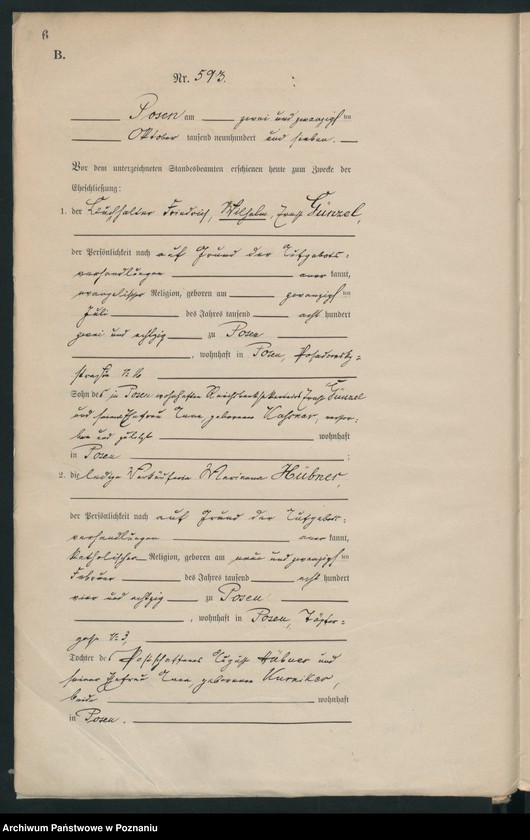 B.
B.
Nr. 593.
Posen am zwei und zwanzigsten
Oktober tausend neunhundert und sieben.
Vor dem unterzeichneten Standesbeamten erschienen heute zum Zwecke der
Eheschließung:
1. der Buchhalter Friedrich, Wilhelm, Franz Günzel,
der Persönlichkeit nach auf Grund der Aufgebots-
verhandlungen anerkannt,
evangelischer Religion, geboren am zwanzigsten
Juli des Jahres tausend acht hundert
zwei und achtzig zu Posen
, wohnhaft in Posen,
straße
Sohn des in Posen wohnhaften Franz Günzel
und seiner Ehefrau geborenen verstor-
ben und zuletzt wohnhaft
in Posen ;
2. die ledige Verkäuferin Marianna Hübner,
der Persönlichkeit nach auf Grund der Aufgebots-
verhandlungen anerkannt,
katholischer Religion, geboren am neun und zwanzigsten
Februar des Jahres tausend acht hundert
vier und achtzig zu Posen
, wohnhaft in Posen, Töpfer-
gasse 3,
Tochter des Postschaffners August Hübner und
seiner Ehefrau geborenen Kurnikar,
beide wohnhaft
in Posen.
Archiwum Państwowe w Poznaniu